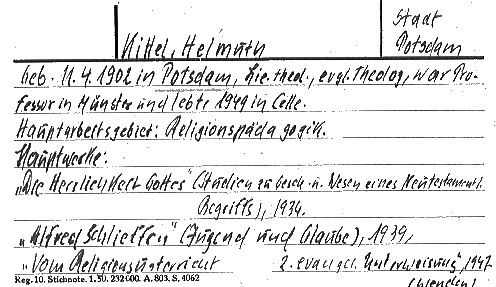 Stadt
Kittel, Helmuth Potsdam
geb. 11.4.1902 in Potsdam, Lic. theol., evgl. Theolog, war Pro-
fessor in Münster und lebte 1949 in Celle.
Hauptarbeitsgebiet: Religionspädagogik.
Hauptwerke:
„Die Herrlichkeit Gottes" (Studien zu Gesch. u. Wesen eines Neutestamentl.
Begriffs), 1934.
„Alfred Schlieffen" (Jugend und Glaube), 1939,
„Vom Religionsunterricht z. evangel. Unterweisung", 1947
Reg. 10. Stichnote. 1. 50. 232000. A. 803. S. 4062 (wenden)